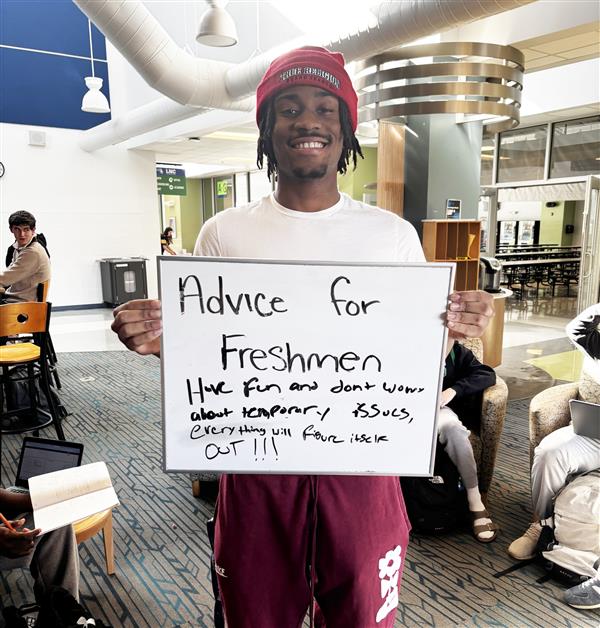 LNC
Advice for
Freshmen
Have fun and dont worry
about temporary issues,
everything will figure itself
OUT !!!